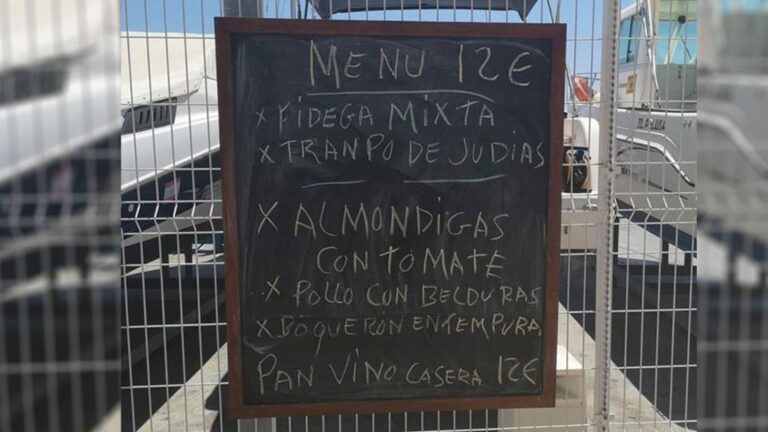 MENU 12€
x FIDEGA MIXTA
x TRANPO DE JUDIAS
X ALMONDIGAS
CON TOMATE
x POLLO CON BELDURAS
x BOQUERON EN TEMPURA
PAN VINO CASERA 12€